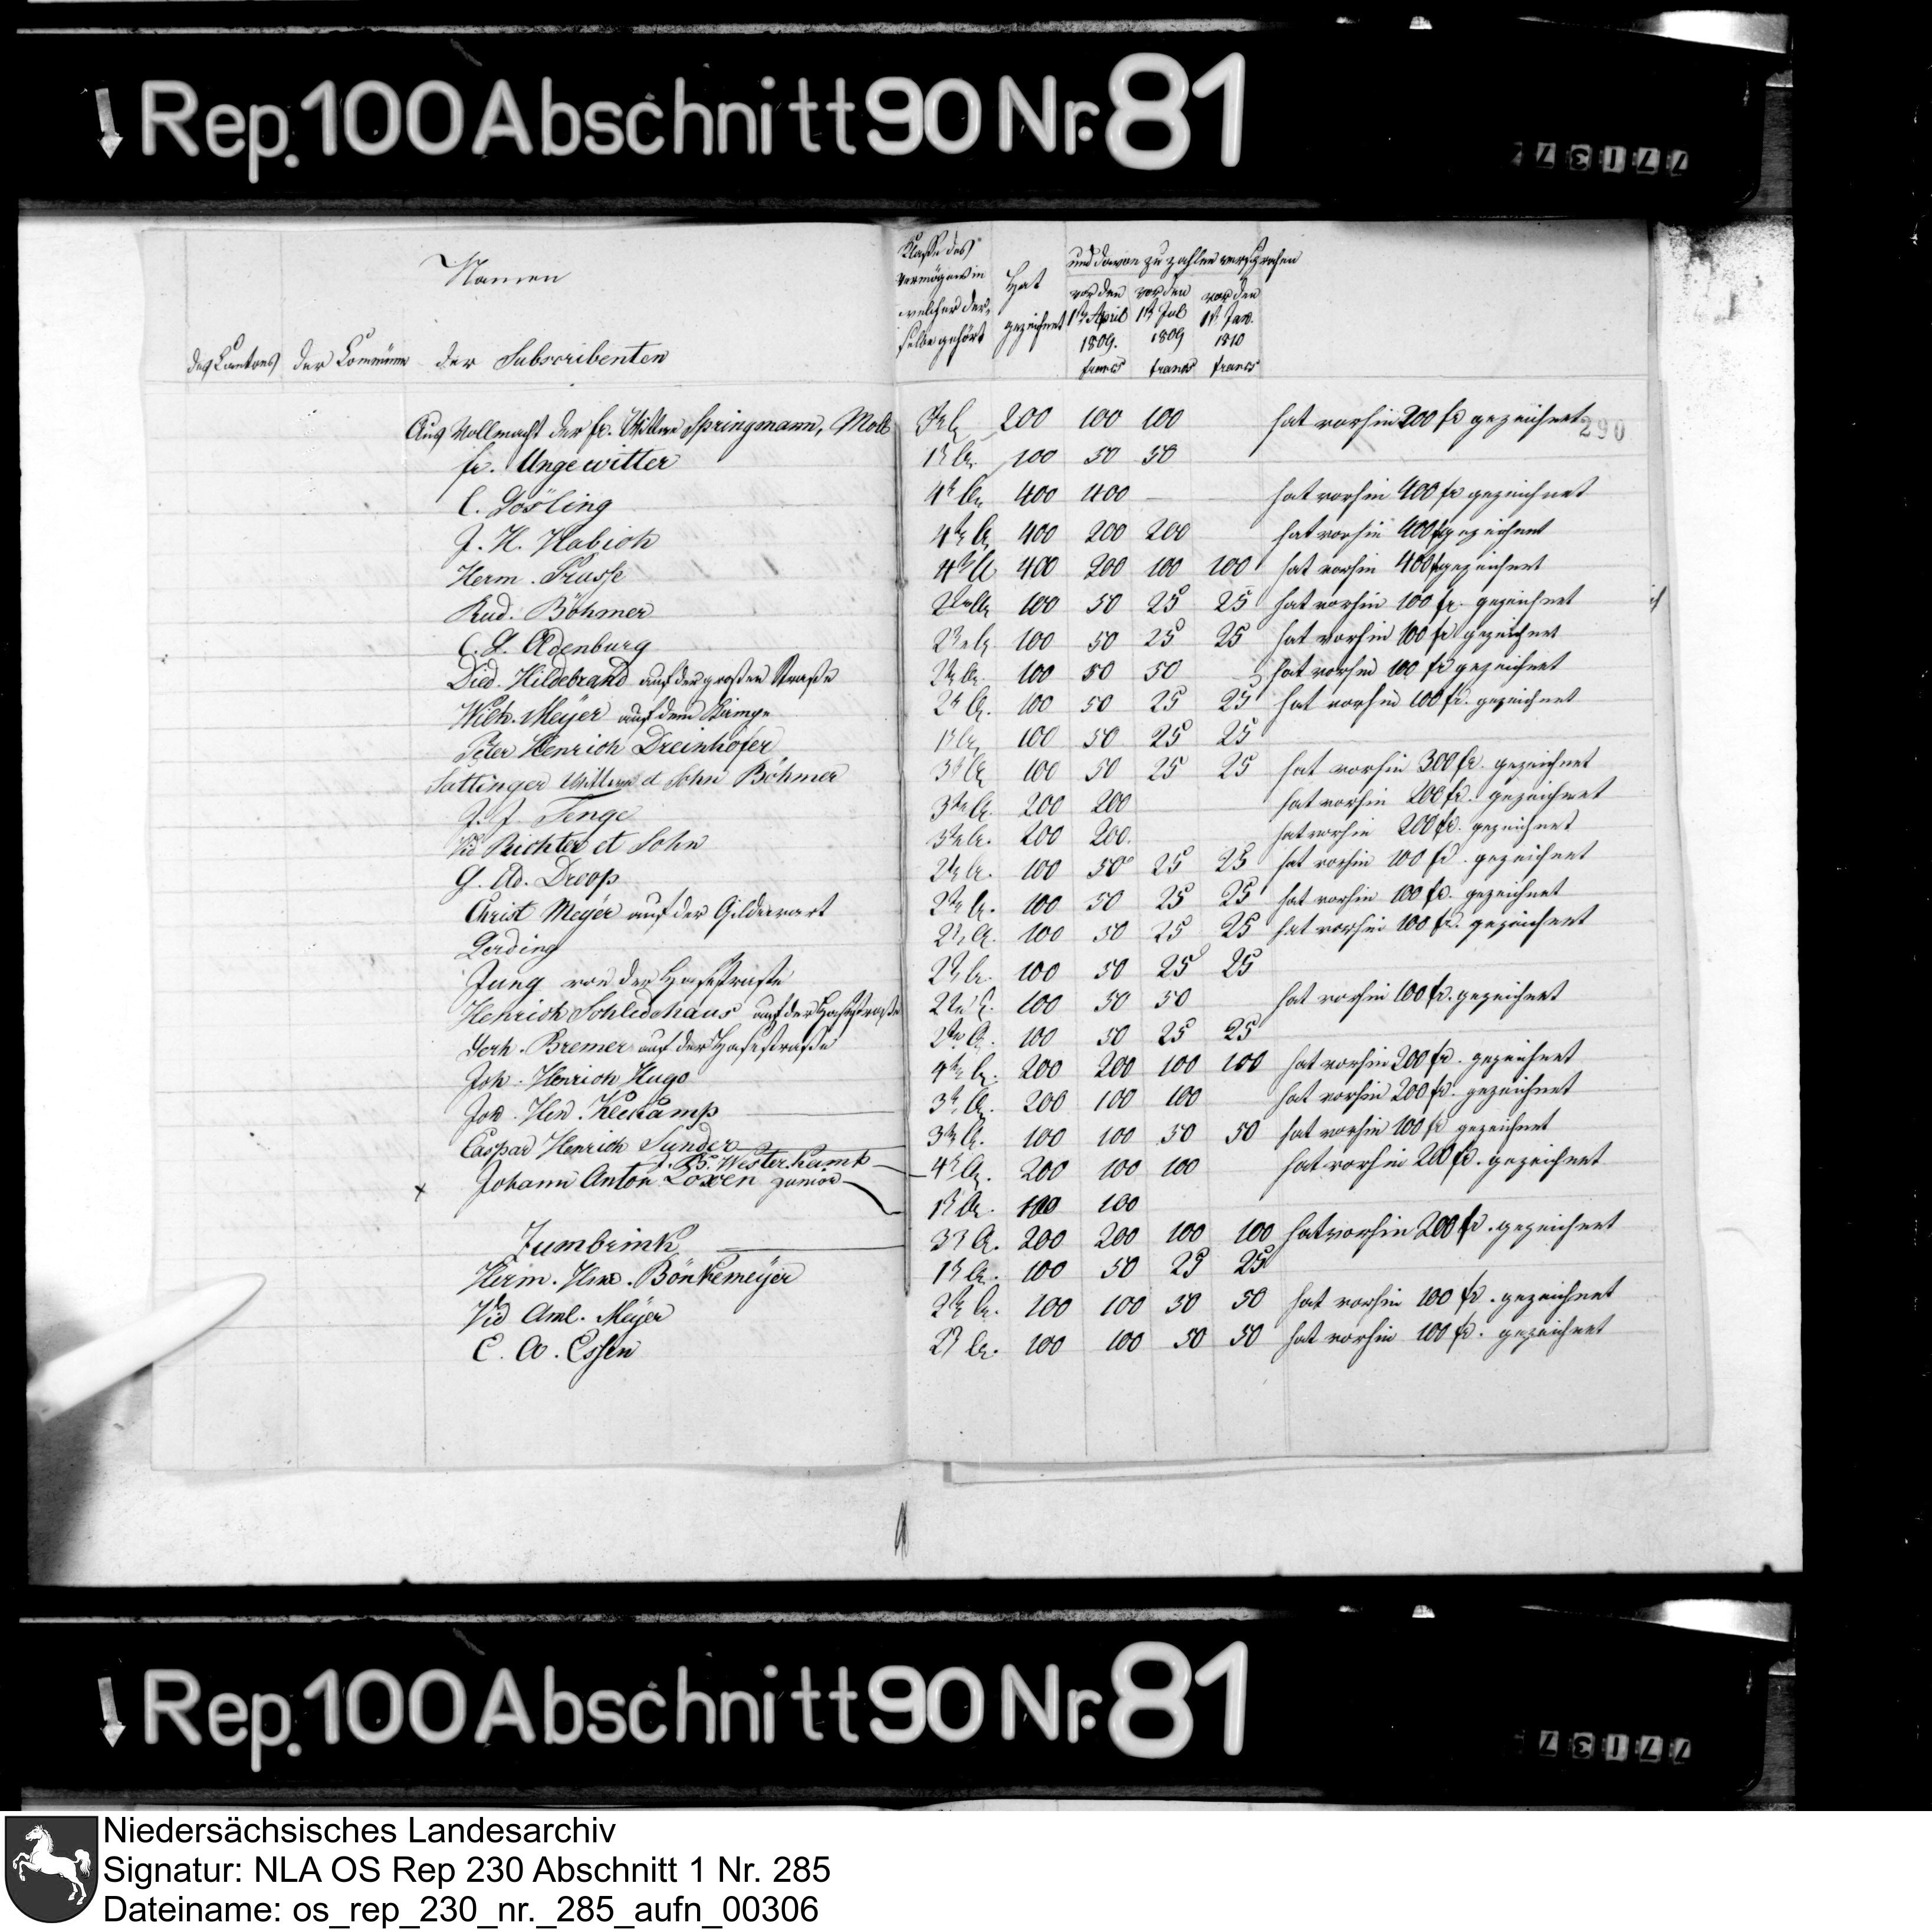 Rep. 100 Abschnitt 90 Nr. 81
77137
Namen
des Cantons der Commüne der Subscribenten
Klasse des Vermögens in welcher derselbe gehört
Hat gezeichnet
und davon zu zahlen versprochen
vor den 1t April 1809. francs
vor den 1t Jul 1809 francs
vor den 1t Jan. 1810 francs
290
Aus Vollmacht der fr. Wittwe Springmann, Moll 200 100 100 hat vorhin 200 fr gezeichnet
fr. Ungewitter 1t Cl. 100 50 50
C. Gösling 4t Cl. 400 400 — hat vorhin 400 fr gezeichnet
J. H. Habich 4te Cl. 400 200 200 hat vorhin 400 fr gezeichnet
Herm. Prusse 4te Cl 400 200 100 100 hat vorhin 400 fr gezeichnet
Rud. Böhmer 2te Cl. 100 50 25 25 hat vorhin 100 fr. gezeichnet
C. G. Adenburg 2te Cl. 100 50 25 25 hat vorhin 100 fr gezeichnet
Died. Hildebrand auf der großen Straße 2te Cl. 100 50 50 hat vorhin 100 fr gezeichnet
Wilh. Meyer auf dem Kampe 2t Cl. 100 50 25 25 hat vorhin 100 fr. gezeichnet
Peter Henrich Dreinhöfer 1t Cl. 100 50 25 25
Sattinger Wittwe et Sohn Böhmer 3t Cl. 100 50 25 25 hat vorhin 300 fr. gezeichnet
J. J. Tenge 3te Cl. 200 200 hat vorhin 200 fr. gezeichnet
Vid Richter et Sohn 3te Cl. 200 200. hat vorhin 200 fr. gezeichnet
G. Ad. Droop 2te Cl. 100 50 25 25 hat vorhin 100 fr. gezeichnet
Christ Meyer auf der Gildewart 2te Cl. 100 50 25 25 hat vorhin 100 fr. gezeichnet
Gerding 2te Cl. 100 50 25 25 hat vorhin 100 fr. gezeichnet
Jung von der Hasestraße 2te Cl. 100 50 25 25
Henrich Schledehaus auf der Hasestraße 2te Cl. 100 50 50 hat vorhin 100 fr. gezeichnet
Gerh. Bremer auf der Hasestraße 2te Cl. 100 50 25 25
Joh. Henrich Hugo 4te Cl. 200 200 100 100 hat vorhin 200 fr. gezeichnet
Joh. Hen. Kleekamp 3t Cl. 200 100 100 hat vorhin 200 fr. gezeichnet
Caspar Henrich Sunder 3te Cl. 100 100 50 50 hat vorhin 100 fr gezeichnet
J. B. Westerkamp 4t Cl. 200 100 100 hat vorhin 200 fr. gezeichnet
x Johann Anton Loxen junior 1t Cl. 100 100
Zumbrink 3t Cl. 200 200 100 100 hat vorhin 200 fr. gezeichnet
Herm. Hen. Bönkemeyer 1t Cl. 100 50 25 25
Vid Aml. Meyer 2te Cl. 100 100 50 50 hat vorhin 100 fr. gezeichnet
C. A. Essen 2t Cl. 100 100 50 50 hat vorhin 100 fr. gezeichnet
Rep. 100 Abschnitt 90 Nr. 81
77137
Niedersächsisches Landesarchiv
Signatur: NLA OS Rep 230 Abschnitt 1 Nr. 285
Dateiname: os_rep_230_nr._285_aufn_00306